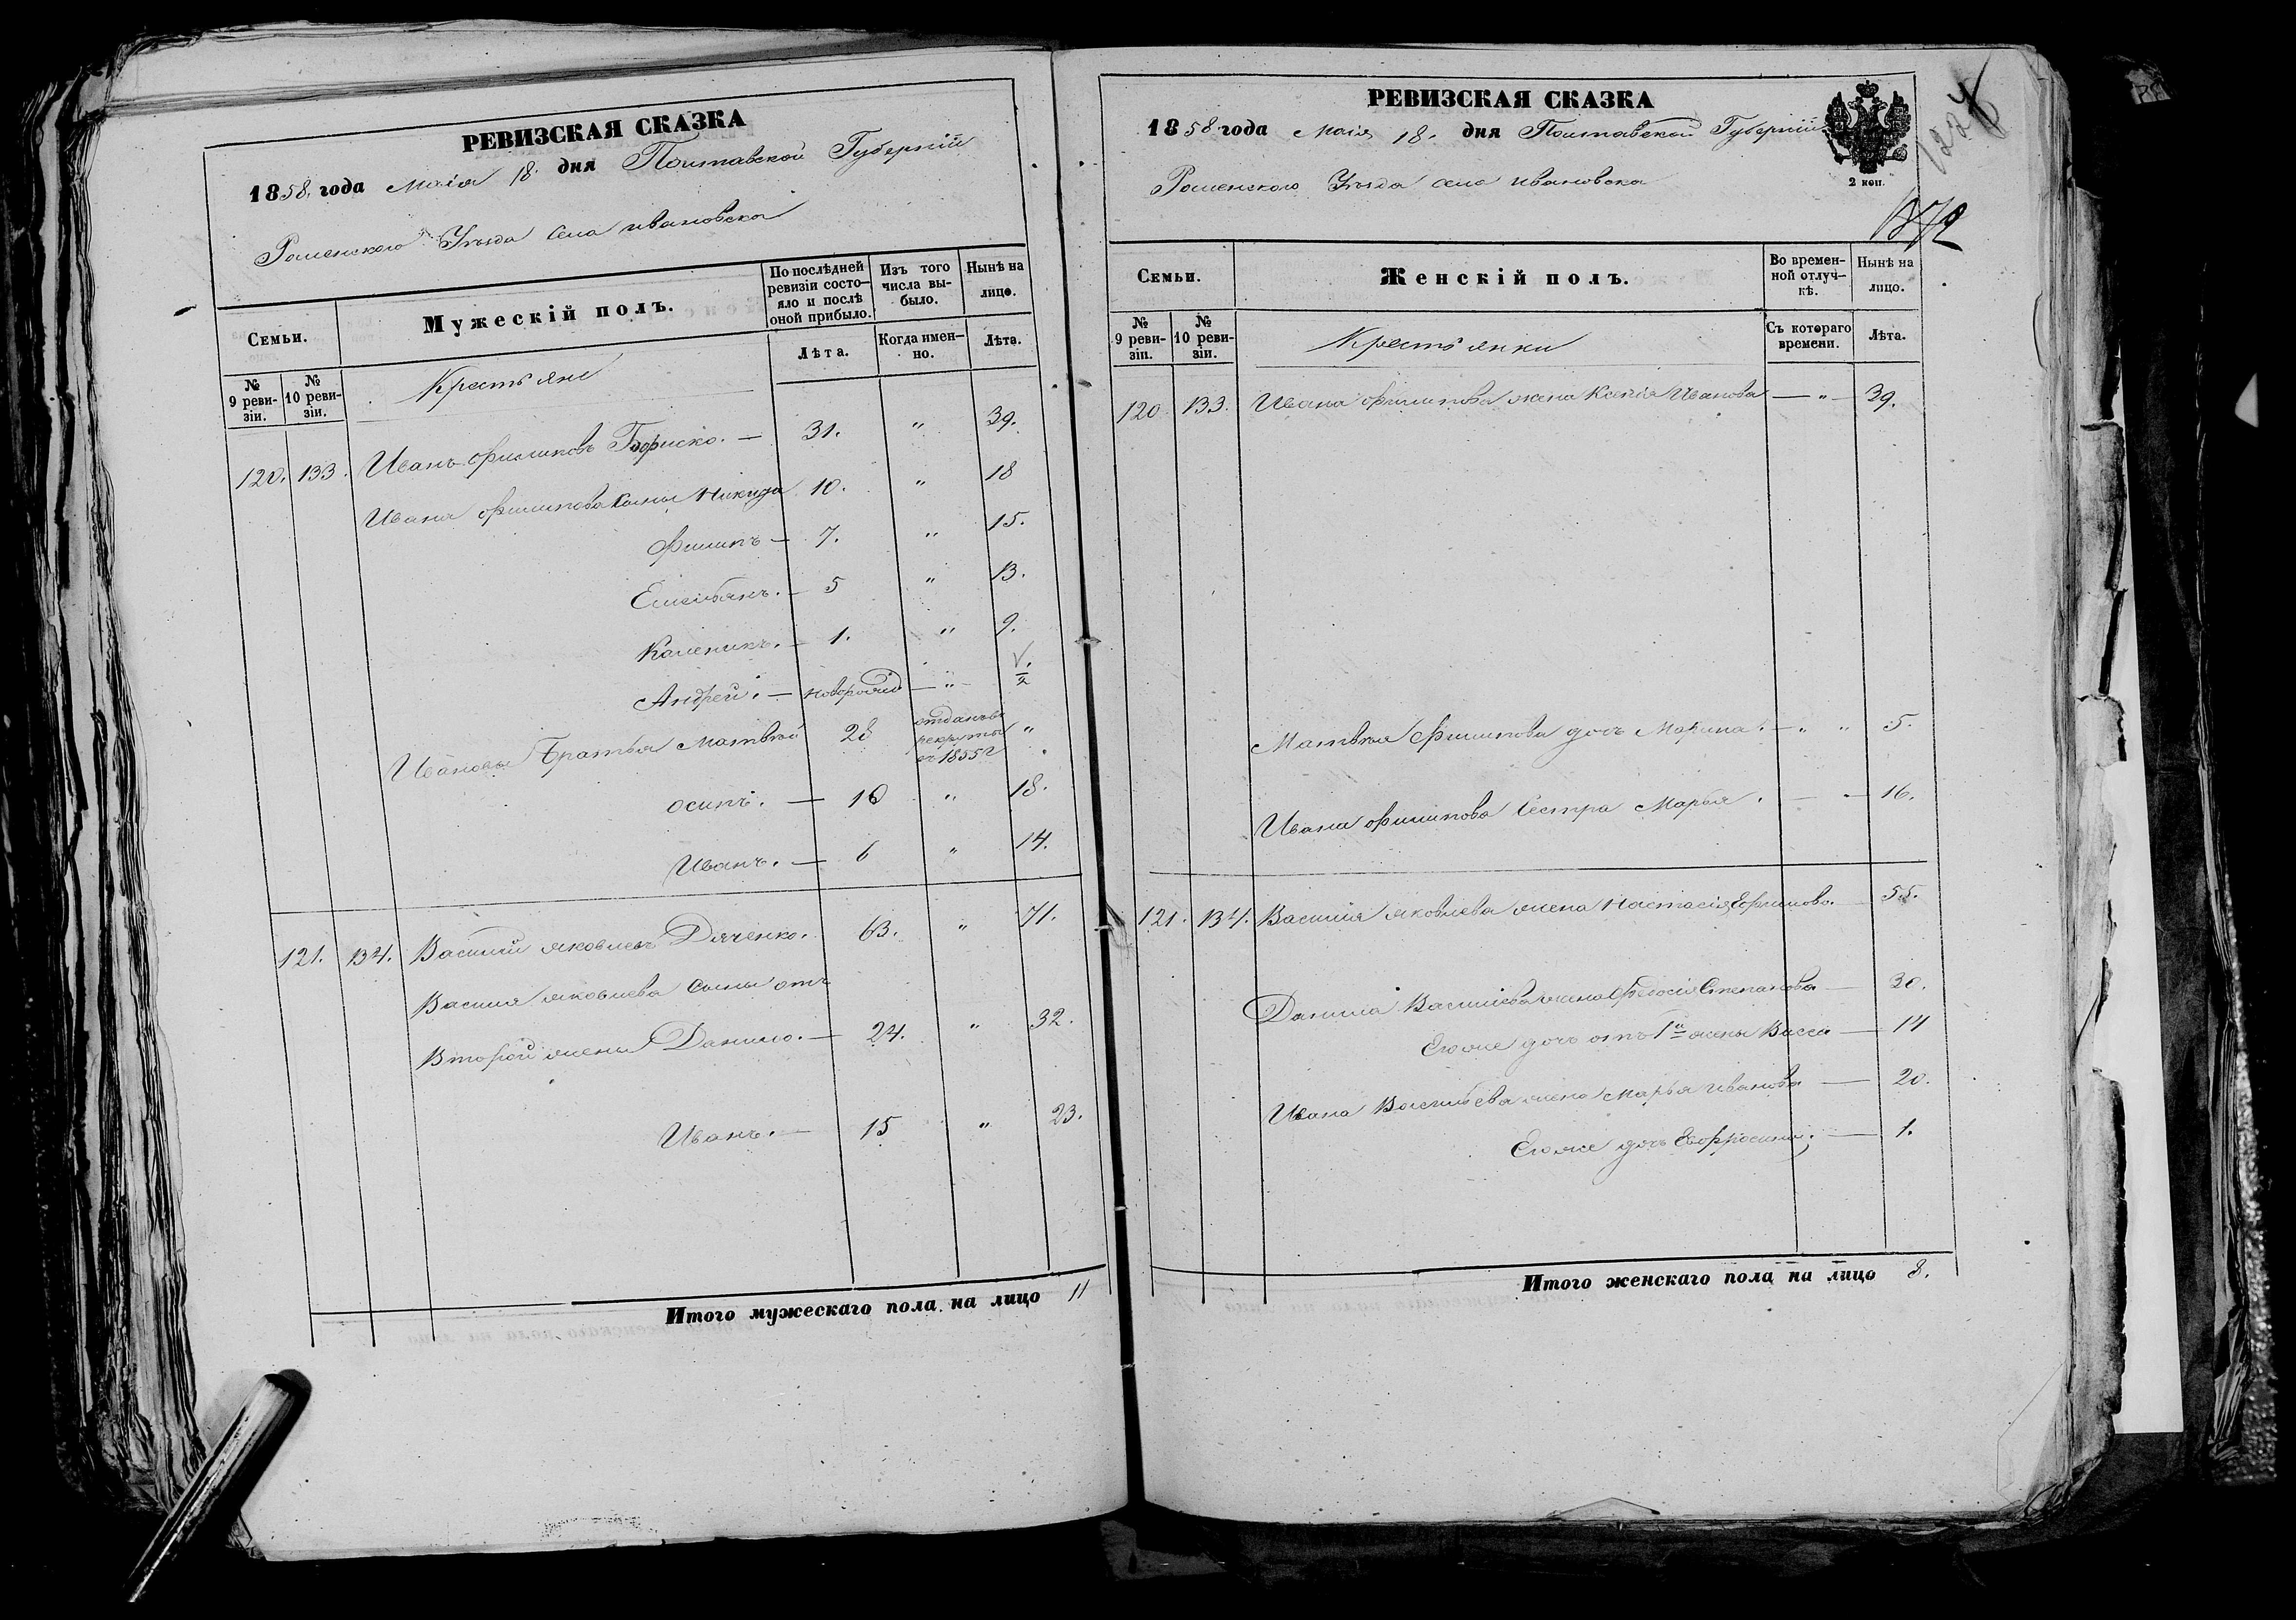 РЕВИЗСКАЯ СКАЗКА
1858. года Маія 18. дня Полтавской Губерніи
Роменского Уѣзда села ивановска
Семьи.
Мужескій полъ.
По послѣдней ревизіи состояло и послѣ оной прибыло.
Изъ того числа выбыло.
Нынѣ на лицо.
№ 9 ревизіи.
№ 10 ревизіи.
Крестьяне
Лѣта.
Когда именно.
Лѣта.
120. 133. Иванъ Филиповъ — 31. " 39.
Ивана Филипова сыны Никида 10. " 18
Филипъ — 7. " 15.
Емельянъ. — 5 " 13.
Каленикъ. — 1. " 9.
Андрей. — новорожд — " —
Ивановы Братья Матвѣй 28 отданъ въ рекруты въ 1855 г "
осипъ. — 10 " 18.
Иванъ. — 6 " 14.
121. 134. Василій яковлевъ Дяченко. 63. " 71.
Василия яковлева сыны отъ
Второй жены Данило. — 24. " 32.
Иванъ. — 15 " 23.
Итого мужескаго пола на лицо 11
РЕВИЗСКАЯ СКАЗКА
1858 года Маія 18. дня Полтавской Губерніи
Роменского Уѣзда села ивановска
2 коп.
Семьи.
Женскій полъ.
Во временной отлучкѣ.
Нынѣ на лицо.
№ 9 ревизіи.
№ 10 ревизіи.
Крестьянки
Съ котораго времени.
Лѣта.
120 133. Ивана Филипова жена Ксенія Иванова — " — 39.
Матвѣя Филипова дочь Марина. — " " 5.
Ивана Филипова Сестра Марья. — — 16.
121. 134. Василия яковлева жена Настасія Ефимова. — 55.
Данила Васильева жена Федосія Степанова — 30.
Его же дочь отъ 1й жены Васса — 14
Ивана Васильева жена Марья иванова — 20.
Его же дочь Евфросинія; — 1.
Итого женскаго пола на лицо 8.